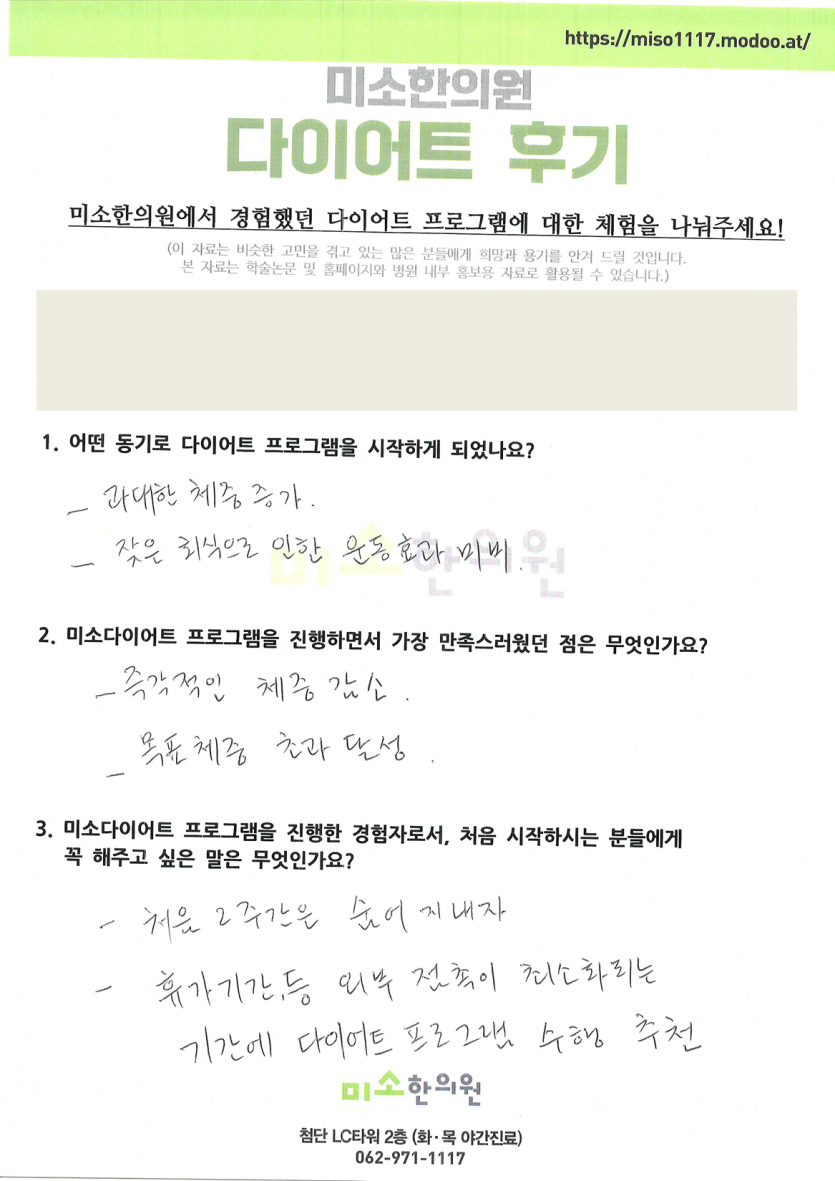 https://miso1117.modoo.at/
미소한의원
다이어트 후기
미소한의원에서 경험했던 다이어트 프로그램에 대한 체험을 나눠주세요!
(이 자료는 비슷한 고민을 겪고 있는 많은 분들에게 희망과 용기를 안겨 드릴 것입니다.
본 자료는 학술논문 및 홈페이지와 병원 내부 홍보용 자료로 활용될 수 있습니다.)
1. 어떤 동기로 다이어트 프로그램을 시작하게 되었나요?
- 과대한 체중증가.
- 잦은 회식으로 인한 운동효과 미비.
미소한의원
2. 미소다이어트 프로그램을 진행하면서 가장 만족스러웠던 점은 무엇인가요?
- 즉각적인 체중 감소.
- 목표체중 초과 달성.
3. 미소다이어트 프로그램을 진행한 경험자로서, 처음 시작하시는 분들에게
꼭 해주고 싶은 말은 무엇인가요?
- 처음 2주간은 숨어 지내자
- 휴가기간, 등 외부 접촉이 최소화되는
기간에 다이어트 프로그램 수행 추천
미소한의원
첨단 LC타워 2층 (화·목 야간진료)
062-971-1117